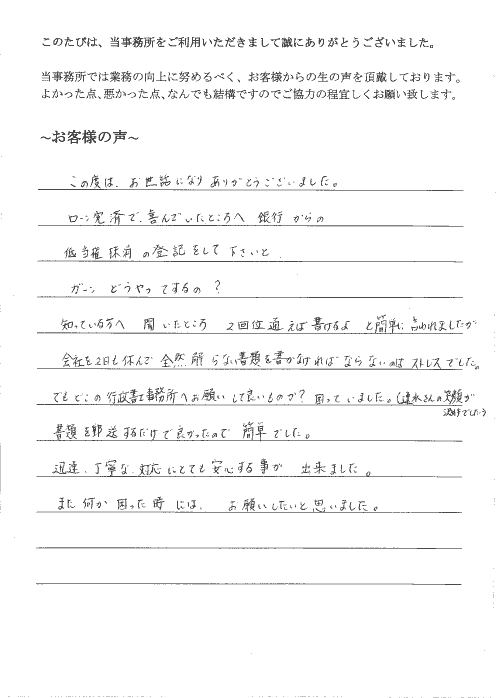 このたびは、当事務所をご利用いただきまして誠にありがとうございました。
当事務所では業務の向上に努めるべく、お客様からの生の声を頂戴しております。
よかった点、悪かった点、なんでも結構ですのでご協力の程宜しくお願い致します。
~お客様の声~
この度は、お世話になり ありがとうございました。
ローン完済で、喜んでいたところへ 銀行からの
抵当権抹消の登記をして下さいと、
ガーン どうやってするの?
知っている方へ 聞いたところ 2回位通えば書けるよ と簡単に言われましたが
会社を2日も休んで 全然解らない書類を書かなければならないのはストレスでした。
でもどこの行政書士事務所へお願いして良いものか?困っていました。(速水さんの笑顔が
決め手でした)
書類を郵送するだけで良かったので 簡単でした。
迅速、丁寧な、対応にとても安心する事が 出来ました。
また何か困った時には、 お願いしたいと思いました。